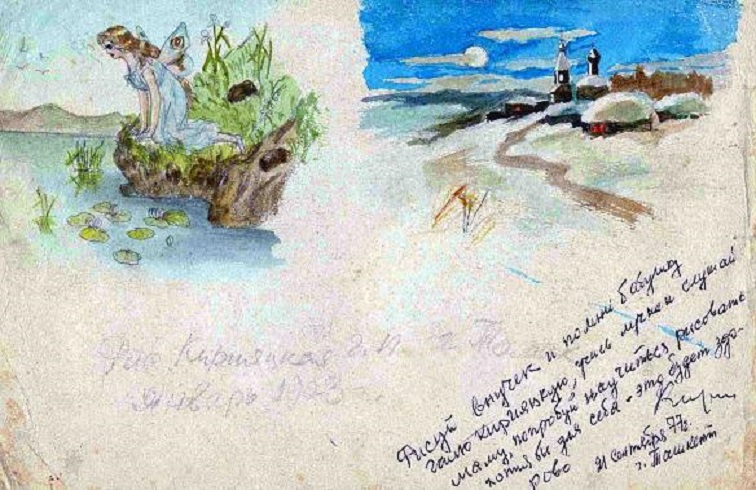 Рис Киргизкая г. Н. г. Таш
январь 1923
Рисуй внучек и помни бабушку
Галю Киргизкую, учись лучше и слушай
маму, попробуй научиться рисовать
хотя бы для себя - это будет здо-
рово 21 сентября 77г.
г. Ташкент